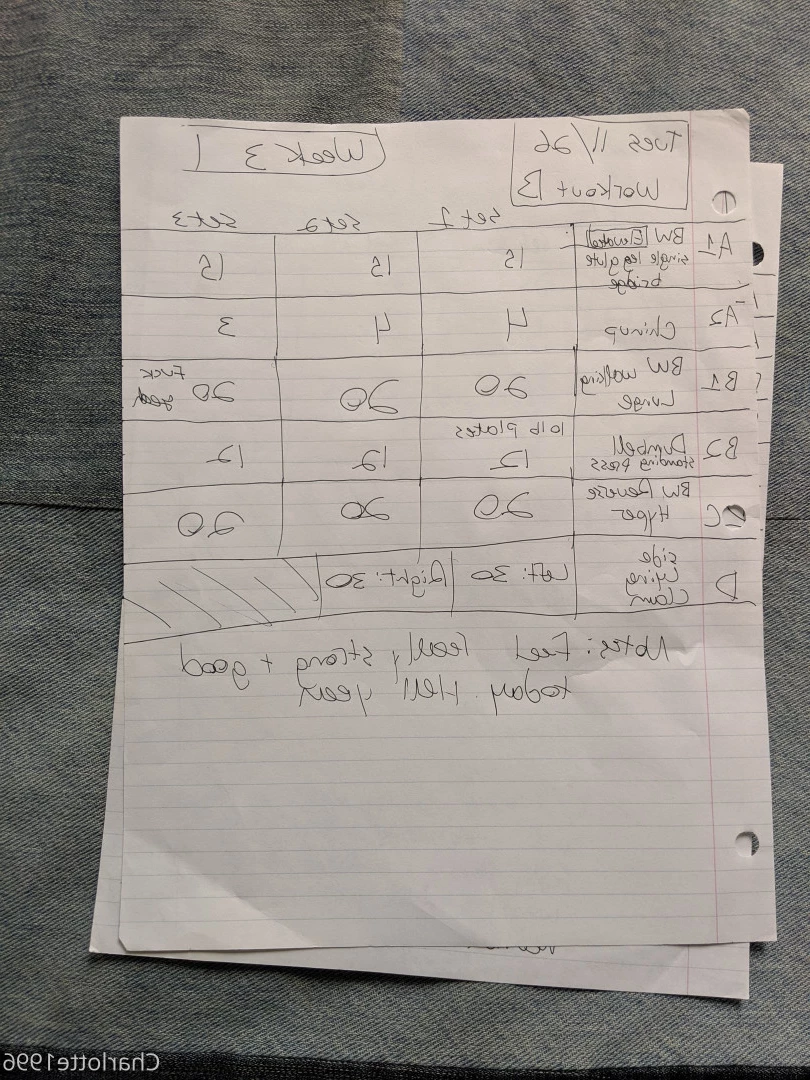 Tues 11/26
Workout B
Week 3
Set 1 Set 2 Set 3
A1 BW Elevated single leg glute bridge 15 15 15
A2 Chinup 4 4 3
B1 BW walking Lunge 20 20 20 Fuck yeah
10 lb plates
B2 Dumbell standing press 12 12 12
C BW Reverse Hyper 20 20 20
D side Lying Clam Left: 30 Right: 30
Notes: Feel really strong + good
today. Hell yeah
Charlotte1996